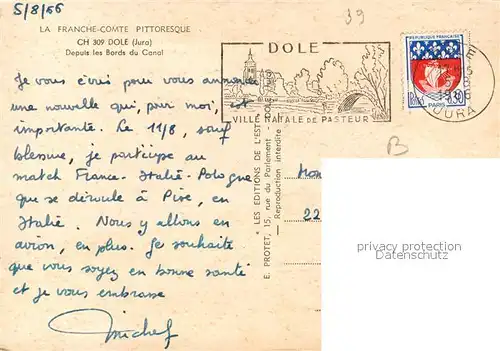 5/8/66
39
LA FRANCHE-COMTE PITTORESQUE
CH 309 DOLE (Jura)
Depuis les Bords du Canal
DOLE
VILLE NATALE DE PASTEUR
REPUBLIQUE FRANÇAISE
0,30
PARIS
1966
JURA
B
Je vous écris pour vous annoncer
une nouvelle qui, pour moi, est
importante. Le 11/8, sauf
blessure, je participe au
match France-Italie-Pologne
qui se déroule à Pise, en
Italie. Nous y allons en
avion, en plus. Je souhaite
que vous soyez en bonne santé
et je vous embrasse
Michel
* LES EDITIONS DE L'EST
E. PROTET, 15, rue du Parlement - DOLE
Reproduction interdite
22
privacy protection
Datenschutz